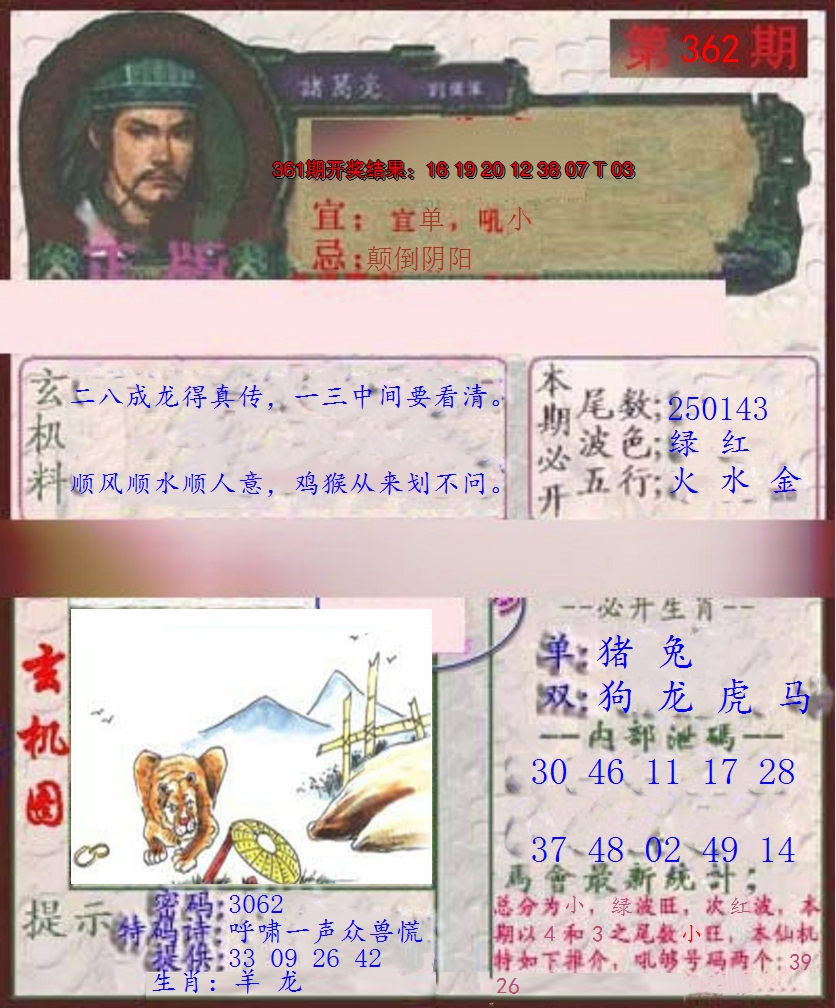 第 362 期
諸葛亮 劉伯溫
361期开奖结果：16 19 20 12 38 07 T 03
宜：宜单，吼小
忌：颠倒阴阳
正版
玄机料
二八成龙得真传，一三中间要看清。
顺风顺水顺人意，鸡猴从来划不问。
本期必开
尾数：250143
波色：绿 红
五行：火 水 金
玄机图
--必开生肖--
单：猪 兔
双：狗 龙 虎 马
--内部泄碼--
30 46 11 17 28
37 48 02 49 14
馬會最新统計；
总分为小，绿波旺，次红波，本
期以4和3之尾数小旺，本仙机
特如下推介，吼够号码两个：39
26
提示
密码：3062
特码诗：呼啸一声众兽慌
提供：33 09 26 42
生肖：羊 龙